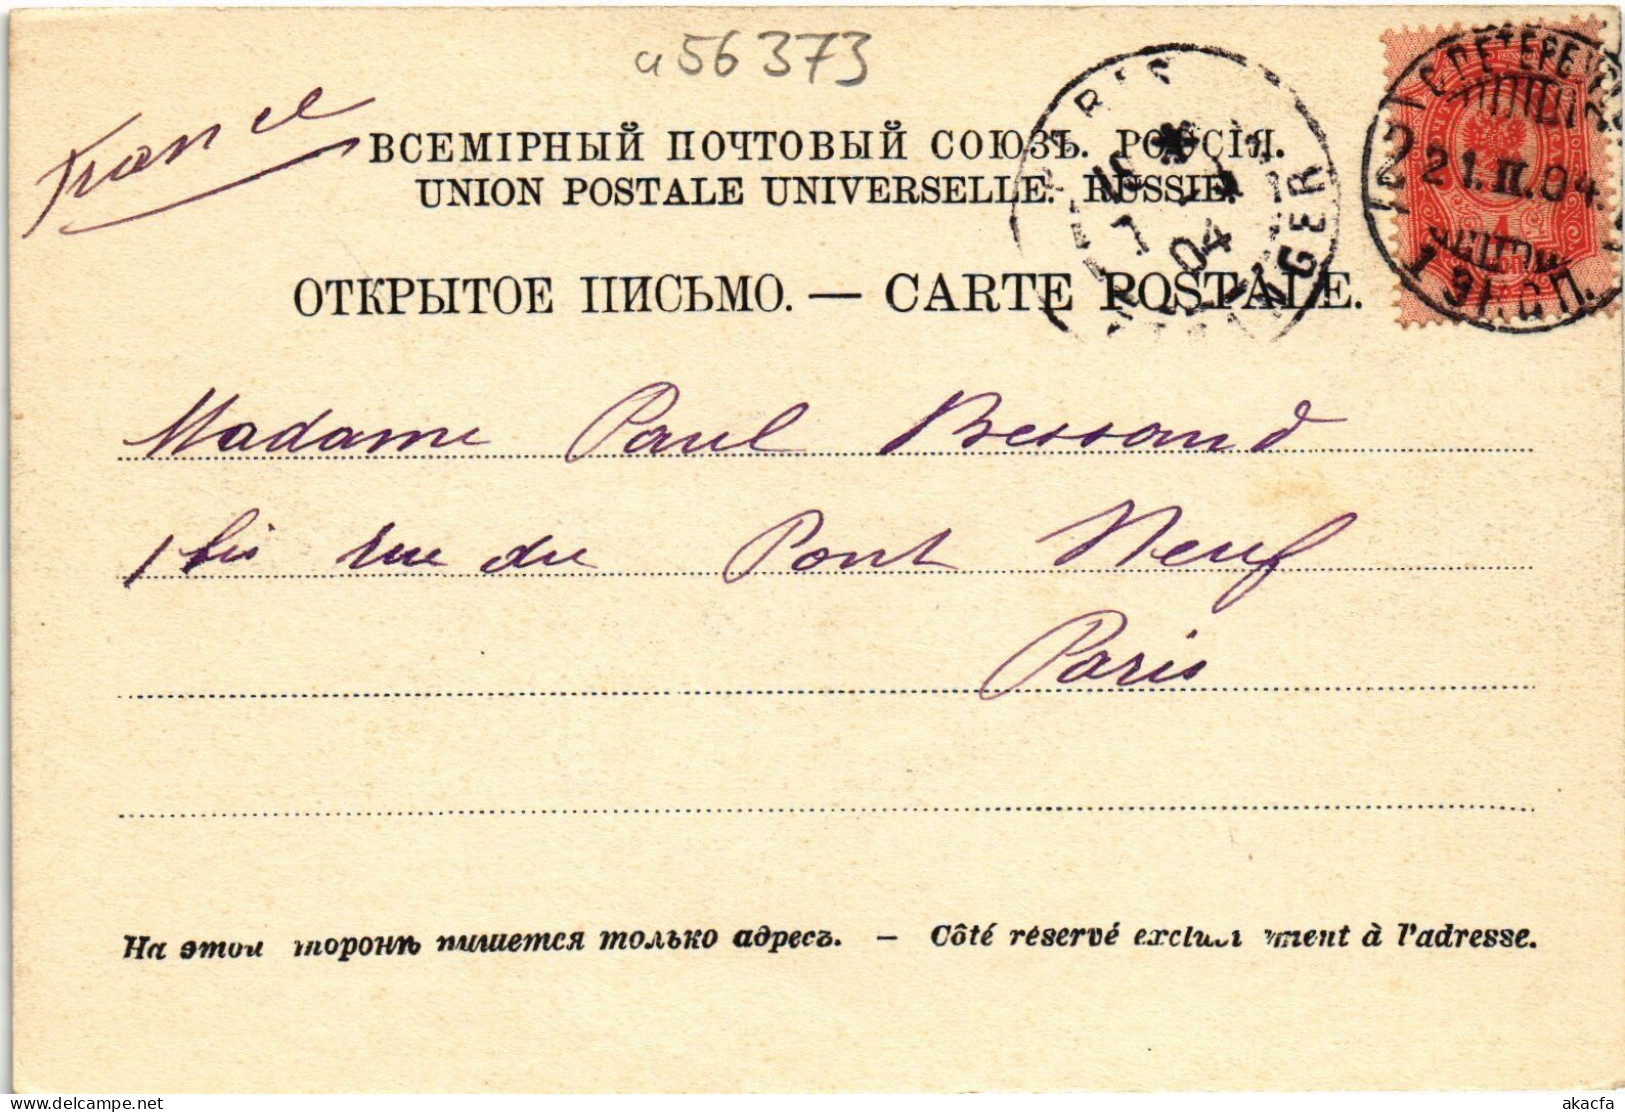 a56373
France
ВСЕМІРНЫЙ ПОЧТОВЫЙ СОЮЗЪ. РОССІЯ.
UNION POSTALE UNIVERSELLE. RUSSIE.
ОТКРЫТОЕ ПИСЬМО. — CARTE POSTALE.
PARIS
7
04
21.II.04
Madame Paul Bessand
1 bis rue du Pont Neuf
Paris
На этой сторонѣ пишется только адресъ. — Côté réservé exclusivement à l'adresse.
akacfa